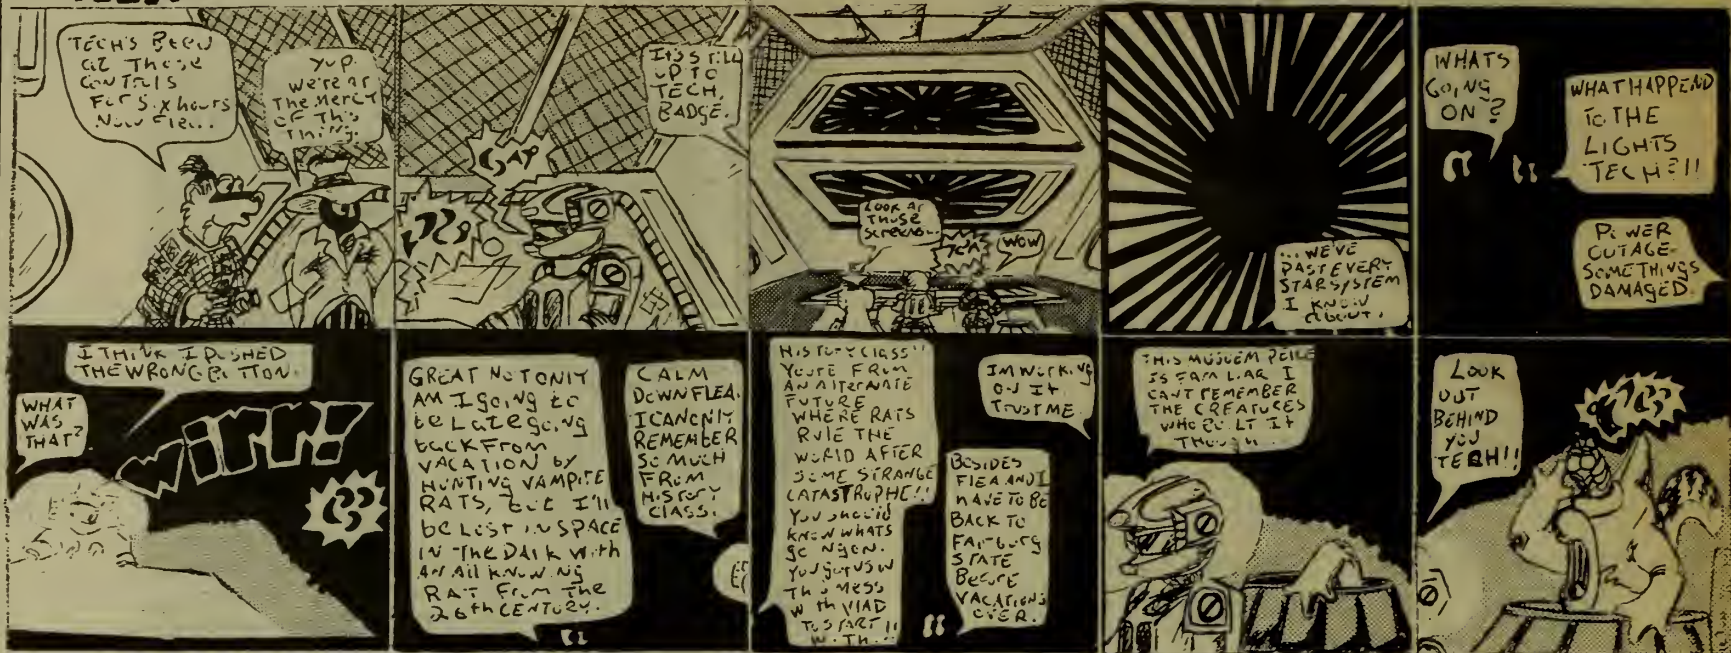 TECH'S BEEN
at Those
CONTROLS
For Six hours
Now Flea..
Yup.
We're at
The Mercy
of This
Thing.
It's STILL
UP TO
TECH,
BADGE.
LOOK AT
THOSE
SCREENS..
WOW
...WE'VE
PAST EVERY
STARSYSTEM
I KNOW
ABOUT.
WHATS
GOING
ON?
WHAT HAPPEND
To THE
LIGHTS
TECH?!!
POWER
OUTAGE-
SOMETHINGS
DAMAGED.
I THINK I PUSHED
THE WRONG BUTTON.
WHAT
WAS
THAT?
WIRR!
GREAT NOT ONLY
AM I going to
be Late going
back From
VACATION by
HUNTING VAMPIRE
RATS, but I'll
be LOST IN SPACE
IN The DARK With
AN All KNOWING
RAT From The
26th CENTURY.
CALM
DOWN FLEA.
I CAN ONLY
REMEMBER
SO MUCH
FROM
HISTORY
CLASS.
HISTORY CLASS!!
YOU'RE FROM
AN Alternate
FUTURE
WHERE RATS
RULE THE
WORLD AFTER
SOME STRANGE
CATASTROPHE!!
You should
KNOW WHATS
GOING ON.
You got us in
This MESS
With VLAD
TO START!!
IM WORKING
ON IT.
TRUST ME.
BESIDES
FLEA AND I
HAVE TO BE
BACK TO
STATE
BEFORE
VACATIONS
OVER.
THIS MUSUEM
IS FAMILIAR I
CANT REMEMBER
THE CREATURES
WHO BUILT IT
THOUGH...
LOOK
OUT
BEHIND
YOU
TECH!!